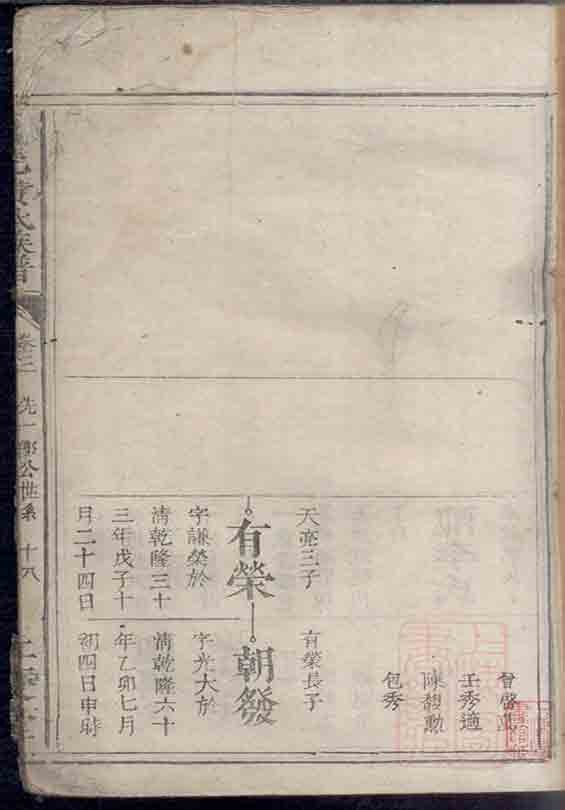 曾啓
王秀適
陳馥勳
包秀
天亮三子
有榮
字謙榮於
清乾隆三十
三年戊子十
月二十四日
有榮長子
朝發
字光大於
清乾隆六十
年乙卯七月
初四日申時
黄氏族譜
卷三
洗一郎公世系
十八